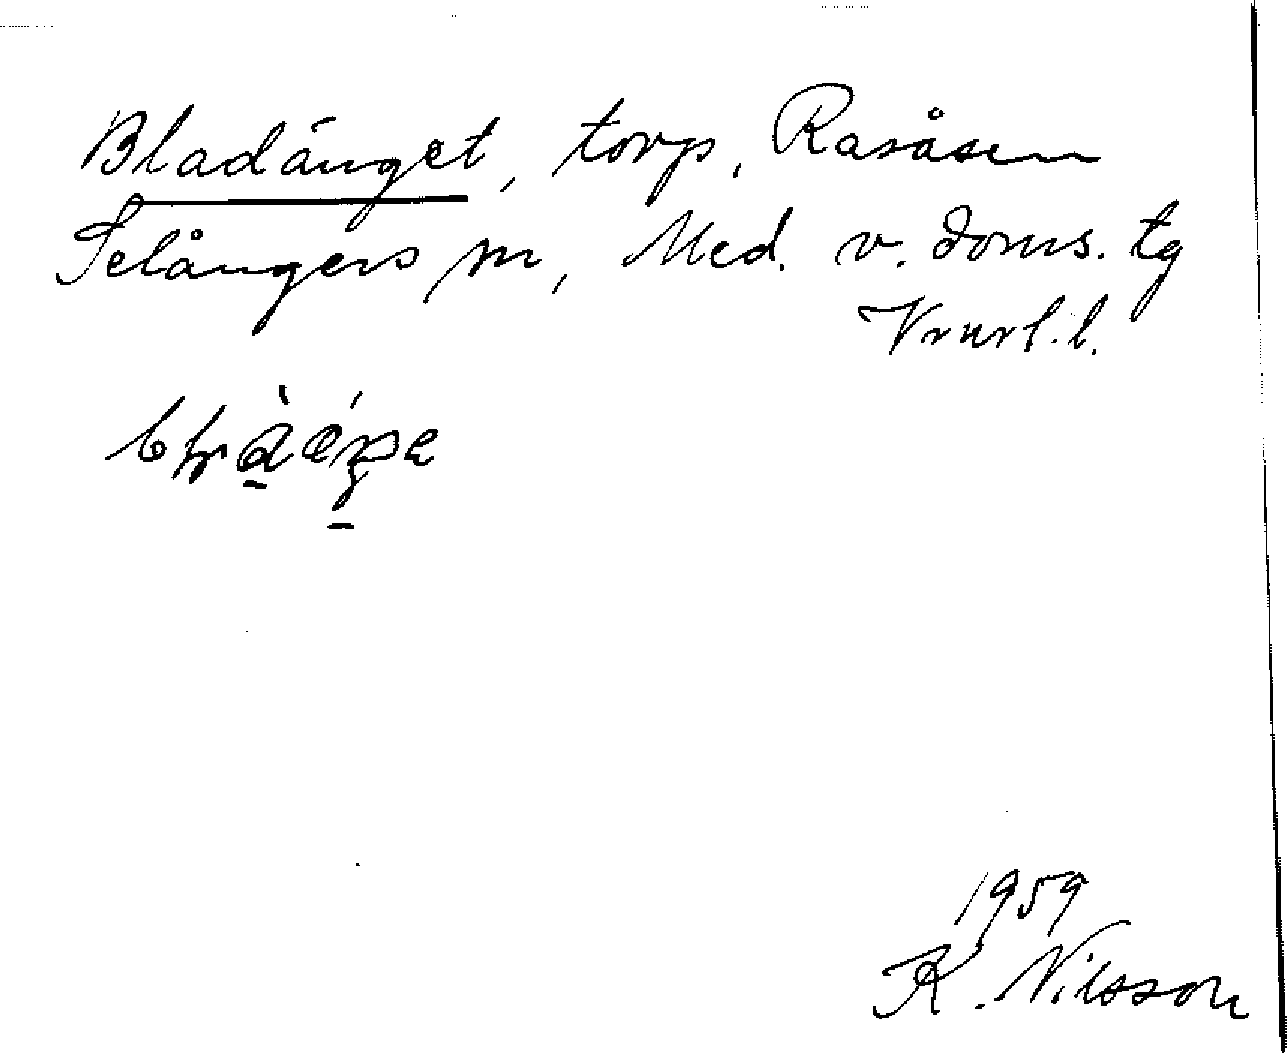 Bladänget, torp, Rasåsen
Selångers sn, Med. v. doms. tg
Vnorl. l.
1959
K. Nilsson